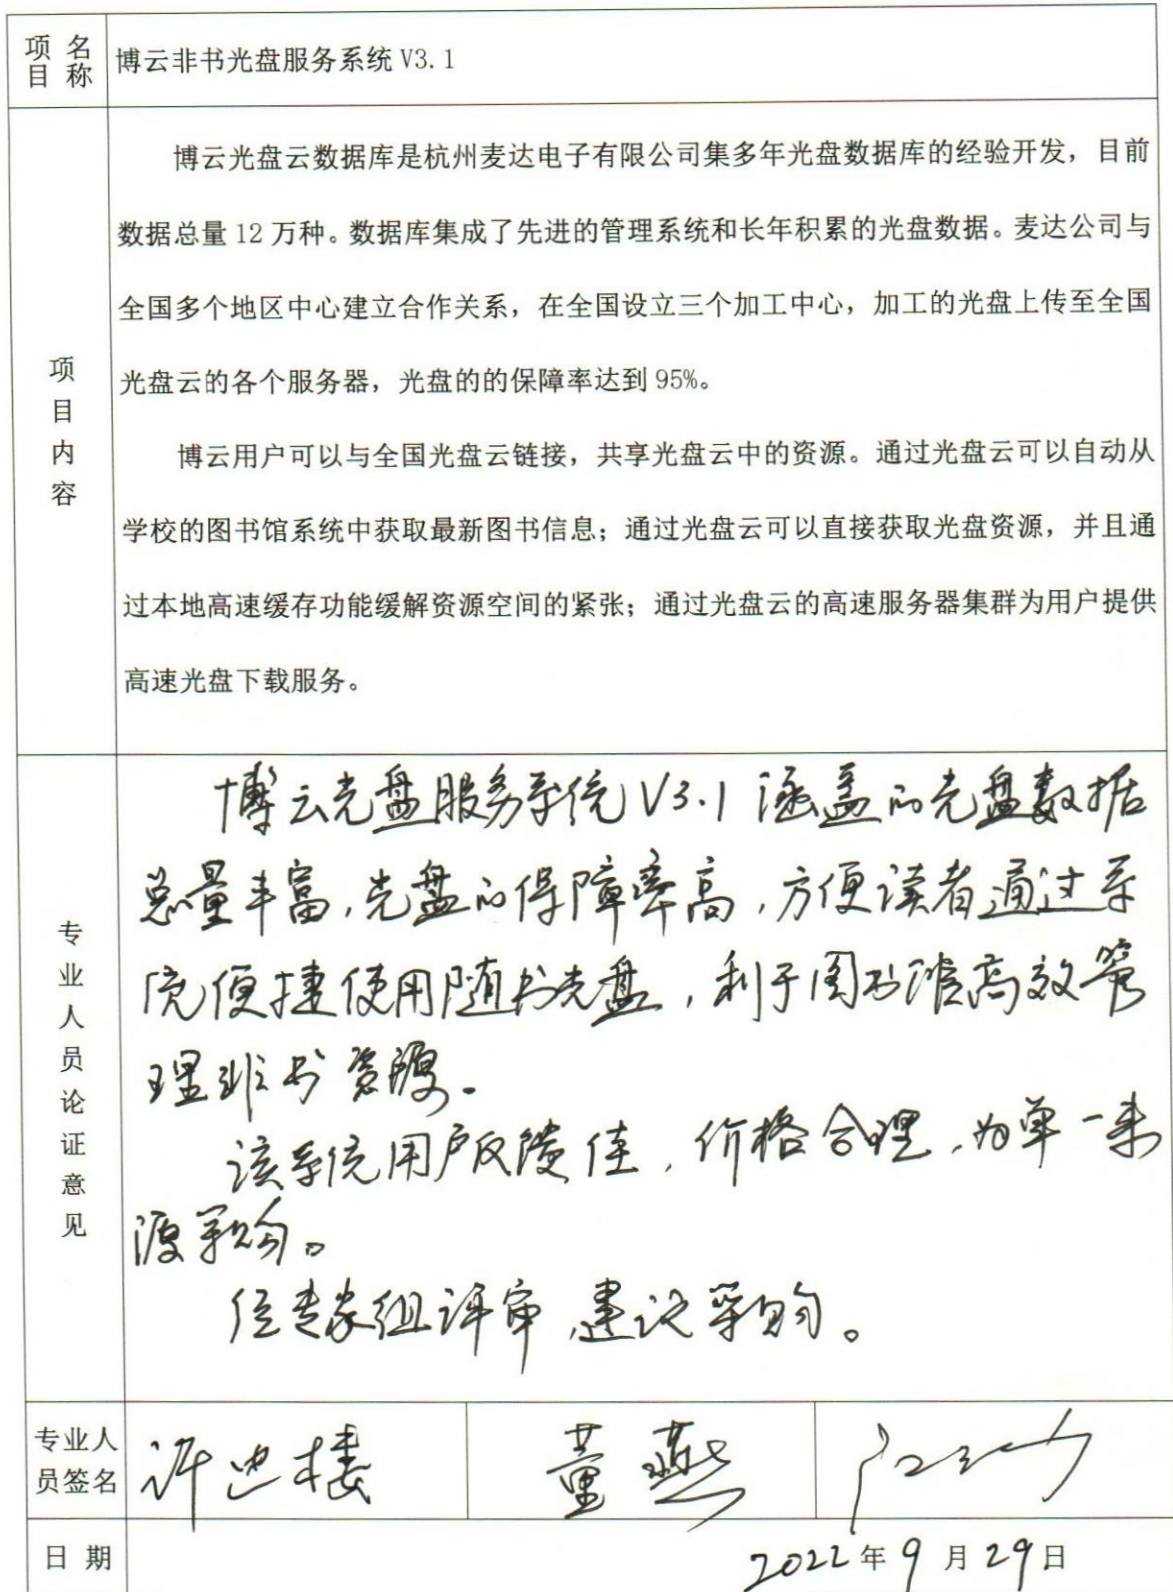 项目名称
博云非书光盘服务系统 V3.1
项目内容
博云光盘云数据库是杭州麦达电子有限公司集多年光盘数据库的经验开发，目前
数据总量 12 万种。数据库集成了先进的管理系统和长年积累的光盘数据。麦达公司与
全国多个地区中心建立合作关系，在全国设立三个加工中心，加工的光盘上传至全国
光盘云的各个服务器，光盘的的保障率达到 95%。
博云用户可以与全国光盘云链接，共享光盘云中的资源。通过光盘云可以自动从
学校的图书馆系统中获取最新图书信息；通过光盘云可以直接获取光盘资源，并且通
过本地高速缓存功能缓解资源空间的紧张；通过光盘云的高速服务器集群为用户提供
高速光盘下载服务。
专业人员论证意见
博云光盘服务系统V3.1涵盖的光盘数据
总量丰富，光盘的保障率高，方便读者通过系
统便捷使用随书光盘，利于图书馆高效管
理非书资源。
该系统用户反馈佳，价格合理，为单一来
源采购。
经专家组评审，建议采购。
专业人员签名
董燕
日期
2022年9月29日